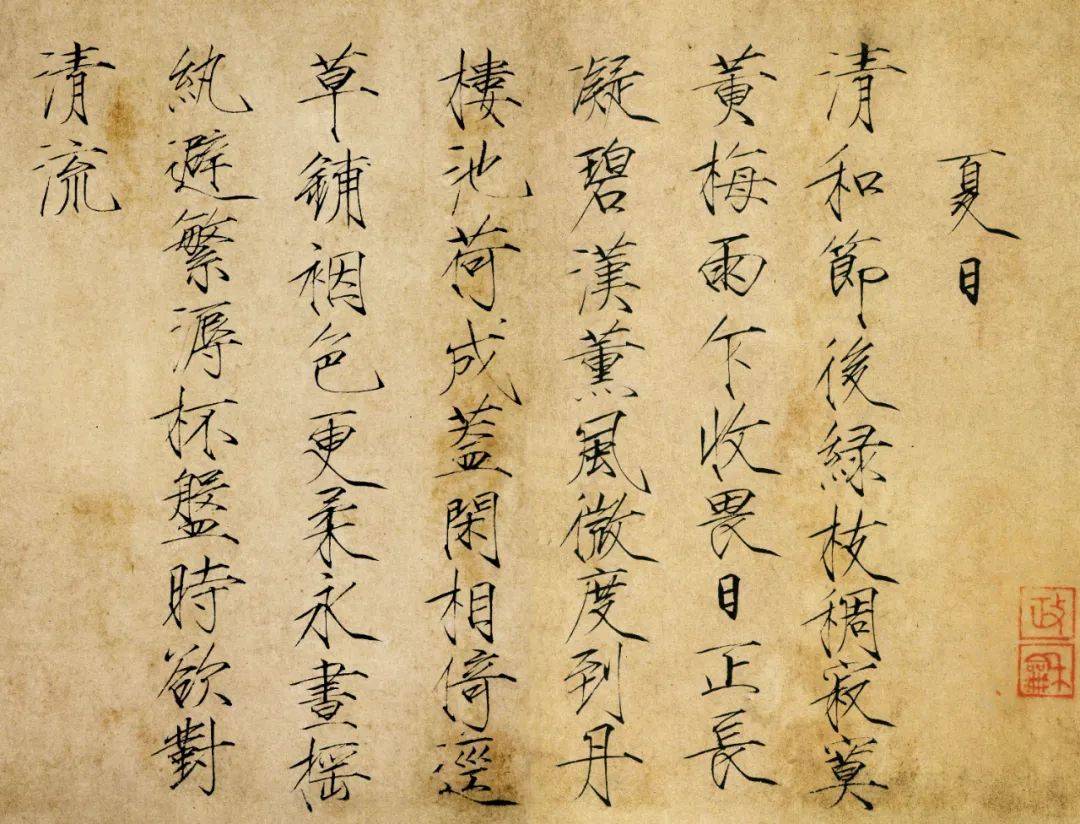 夏日
清和節後緑枝稠寂寞
黃梅雨乍收畏日正長
凝碧漢薰風微度到丹
樓池荷成蓋閑相倚逕
草鋪裀色更柔永晝搖
紈避繁溽杯盤時欲對
清流
政
龢